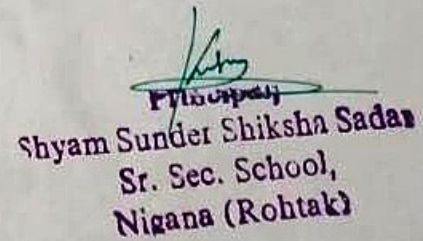 Principal
Shyam Sunder Shiksha Sadan
Sr. Sec. School,
Nigana (Rohtak)